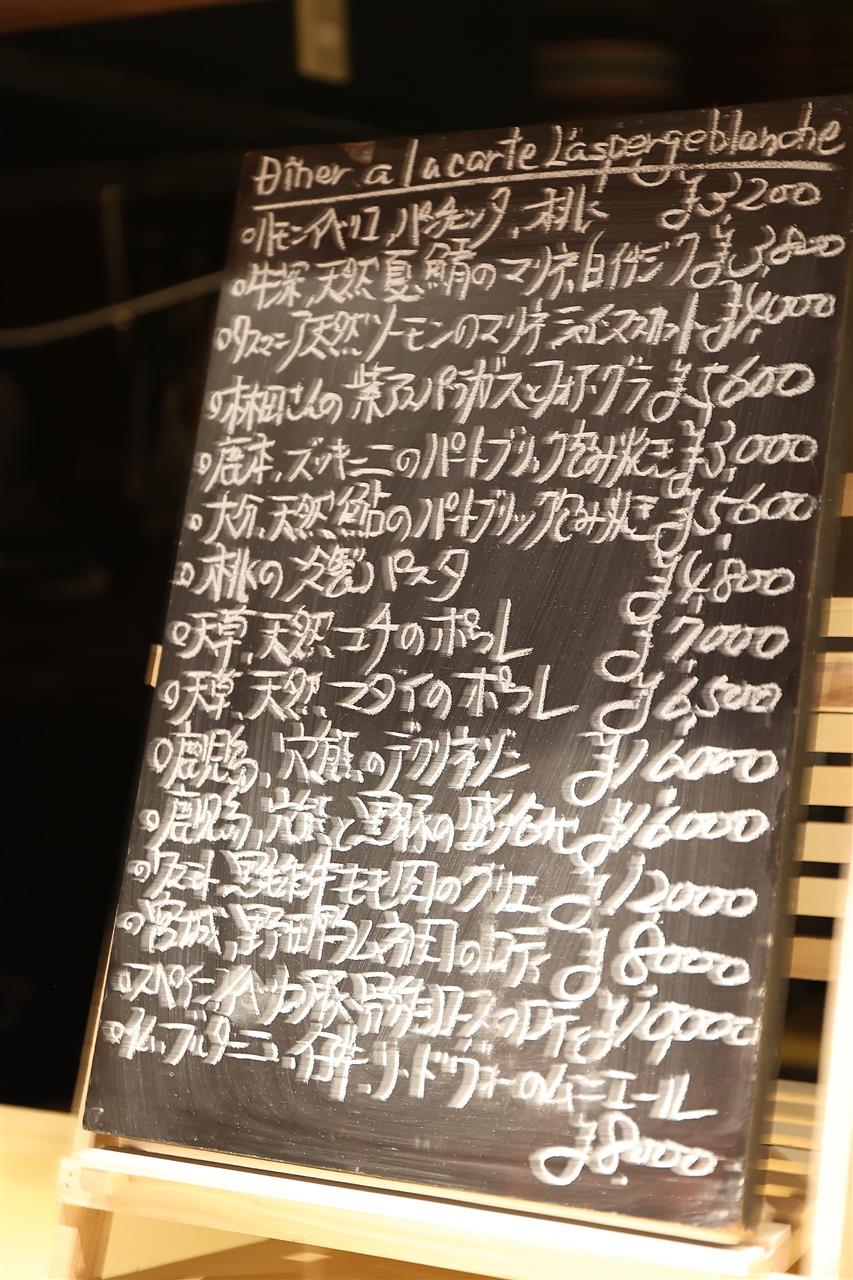 Dîner a la carte L'aspergeblanche
ハモンイベリコ、パンチェッタ、桃 ¥3,200
牛深、天然、夏、鯖のマリネ、白イチジク ¥3,800
タスマニア天然サーモンのマリネ ¥4,000
林田さんの紫アスパラガスとフォアグラ ¥5,600
鹿本、ズッキーニのパートブリック包み焼き ¥3,000
大分、天然、鮎のパートブリック包み焼き ¥5,600
桃の冷製パスタ ¥4,800
天草、天然、コチのポワレ ¥7,000
天草、天然、マダイのポワレ ¥6,500
鹿児島、穴熊のデクリネゾン ¥16000
鹿児島、穴熊と野豚の盛り合わせ ¥16000
黒毛和牛もも肉のグリエ ¥12000
宮城、野田鴨ムネ肉のロティ ¥8000
スペイン、イベリコ豚、骨付きロースのロティ ¥10,000
仏、ブルターニュ、仔牛、リ・ド・ヴォーのムニエール
¥8000